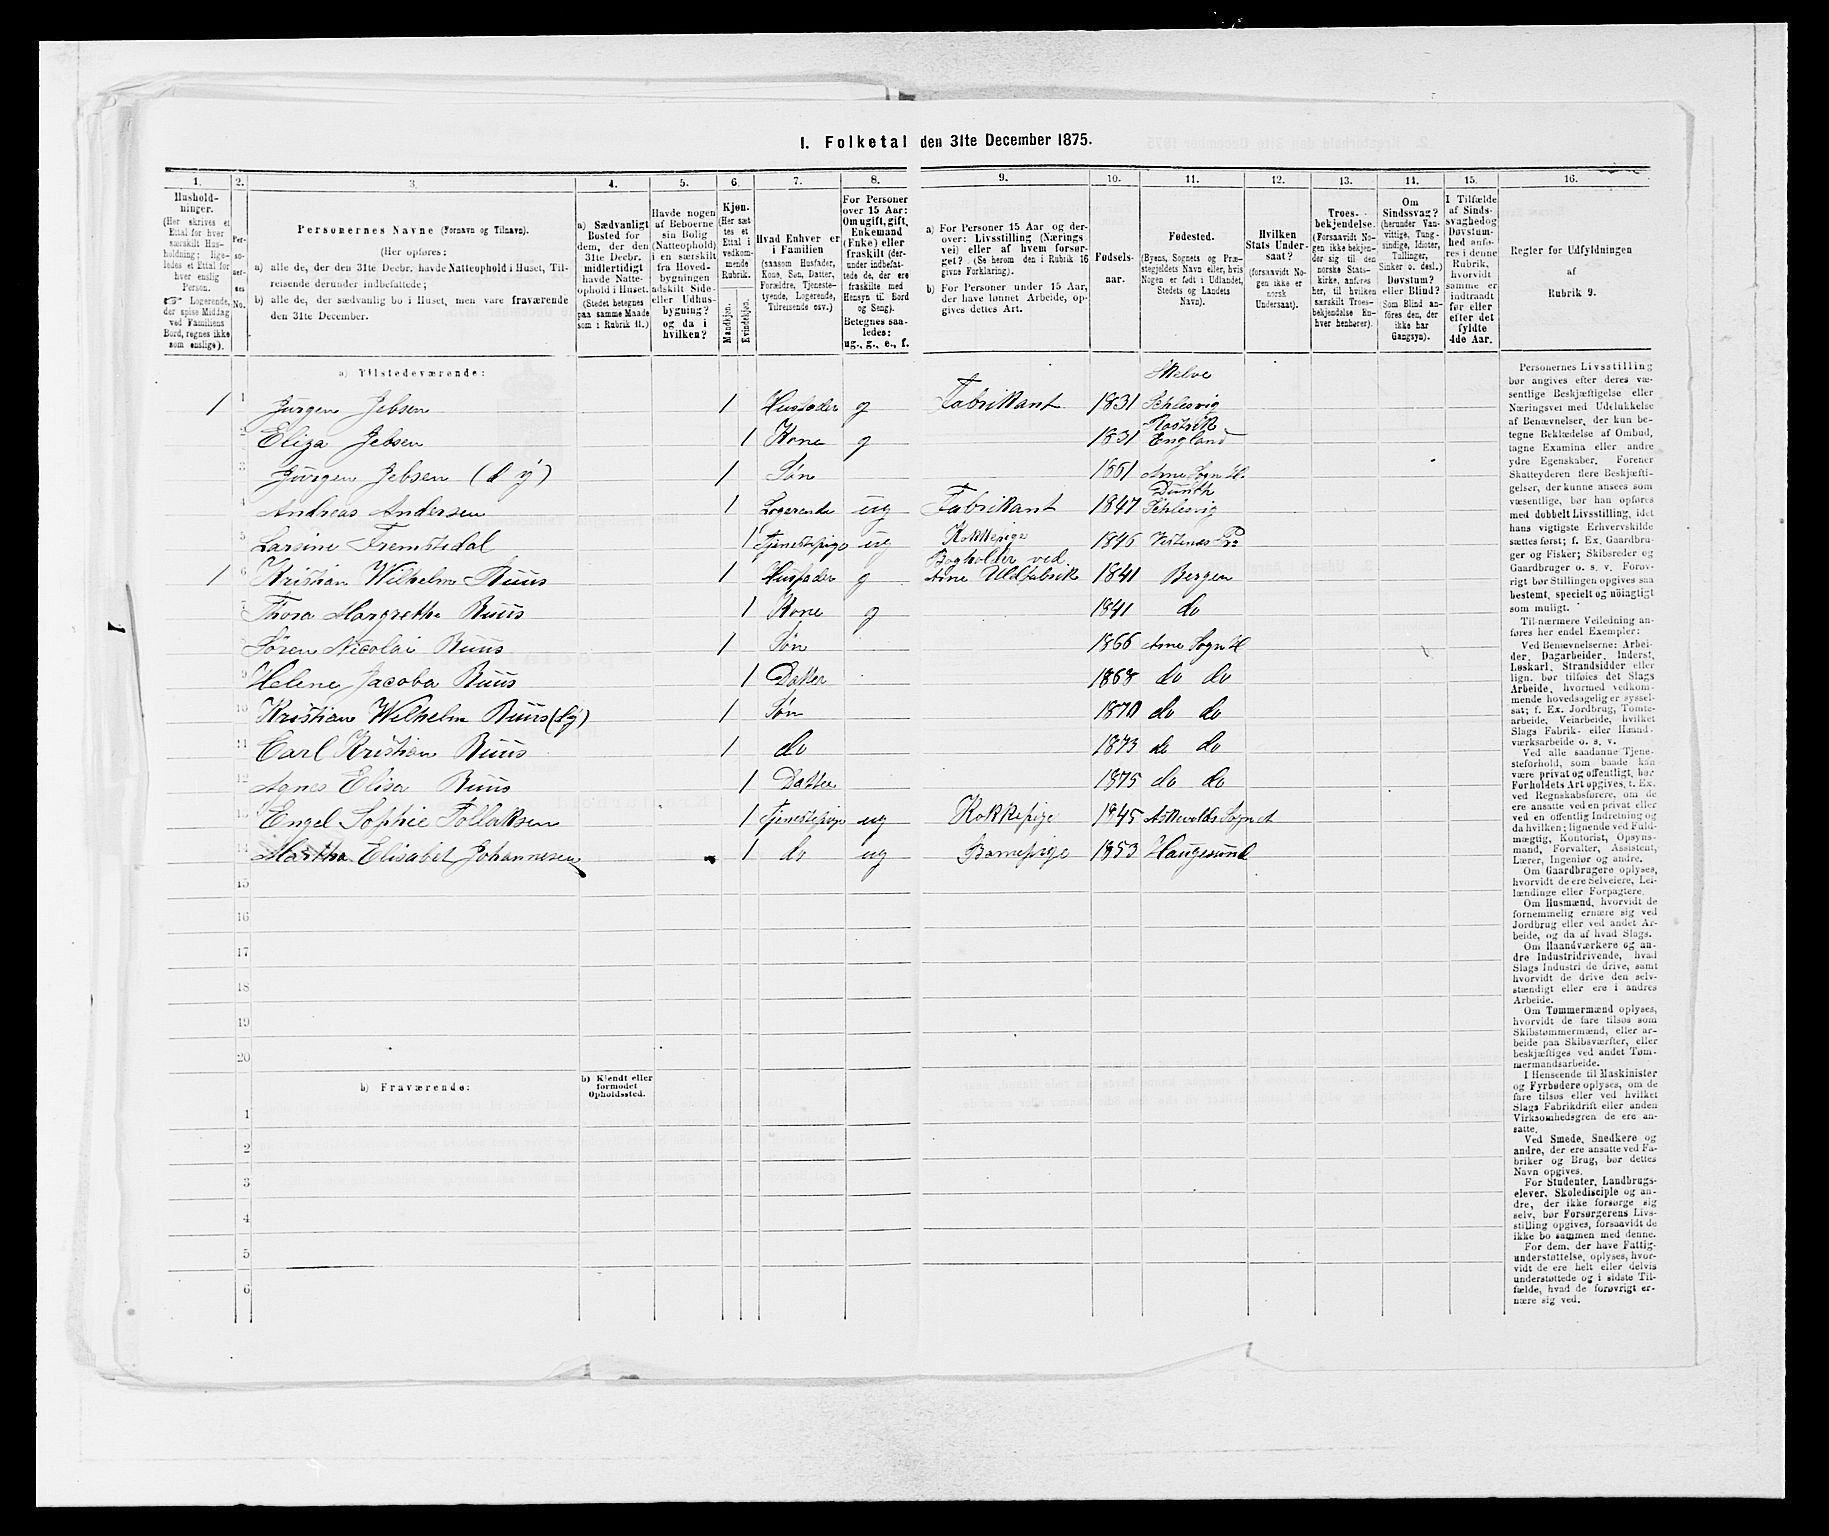 I. Folketal den 31te December 1875.
1. 2. 3. 4. 5. 6. 7. 8. 9. 10. 11. 12. 13. 14. 15. 16.
Hushold-
ninger.
(Her skrives et
Ettal for hver
særskilt Hus-
holdning; lige-
ledes et Ettal for
hver enslig
Person.
☞ Logerende,
der spise Middag
ved Familiens
Bord, regnes ikke
som enslige).
Per-
so-
ner-
nes
No.
Personernes Navne (Fornavn og Tilnavn).
(Her opføres:
a) alle de, der den 31te Decbr. havde Natteophold i Huset, Til-
reisende derunder indbefattede;
b) alle de, der sædvanlig bo i Huset, men vare fraværende
den 31te December.
a) Sædvanligt
Bosted for
dem, der den
31te Decbr.
midlertidigt
havde Natte-
ophold i Huset.
(Stedet betegnes
paa samme Maade
som i Rubrik 11.)
Havde nogen
af Beboerne
sin Bolig
(Natteophold)
i en særskilt
fra Hoved-
bygningen
adskilt Side-
eller Udhus-
bygning?
og da i
hvilken?
Kjøn.
(Her sæt-
tes et
Ettal i
vedkom-
mende
Rubrik.
Mandkjøn.
Kvindekjøn.
Hvad Enhver er
i Familien
(saasom Husfader,
Kone, Søn, Datter,
Forældre, Tjeneste-
tyende, Logerende,
Tilreisende osv.)
For Personer
over 15 Aar:
Om ugift, gift,
Enkemand
(Enke) eller
fraskilt (der-
under indbefat-
tede de, der ere
fraskilte med
Hensyn til Bord
og Seng).
Betegnes saa-
ledes:
ug., g., e., f.
a) For Personer 15 Aar og der-
over: Livsstilling (Nærings-
vei) eller af hvem forsør-
get? (Se herom den i Rubrik 16
givne Forklaring).
b) For Personer under 15 Aar,
der have lønnet Arbeide, op-
gives dettes Art.
Fødsels-
aar.
Fødested.
(Byens, Sognets og Præ-
stegjeldets Navn eller, hvis
Nogen er født i Udlandet,
Stedets og Landets
Navn).
Hvilken
Stats Under-
saat?
(forsaavidt No-
gen ikke er
norsk
Undersaat).
Troes-
bekjendelse.
(Forsaavidt No-
gen ikke bekjen-
der sig til den
norske Stats-
kirke, anføres
her, til hvilken
særskilt Troes-
bekjendelse En-
hver henhører).
Om
Sindssvag?
(herunder Van-
vittige, Tung-
sindige, Idioter,
Tullinger,
Sinker o. desl.)
Døvstum?
eller Blind?
(Som Blind an-
føres den, der
ikke har
Gangsyn).
I Tilfælde
af Sinds-
svaghed og
Døvstum-
hed anfø-
res i denne
Rubrik,
hvorvidt
samme er
indtraadt
før eller
efter det
fyldte
4de Aar.
Regler for Udfyldningen
af
Rubrik 9.
a) Tilstedeværende:
1 1 Jürgen Jebsen 1 Husfader g Fabrikant 1831 Schlesvig
2 Eliza Jebsen 1 Kone g 1831 England
3 Jürgen Jebsen (d y) 1 Søn 1861 Arne Sogn H.
4 Andreas Andersen 1 Logerende ug Fabrikant 1847 Schlesvig
5 Larsine Fremstedal 1 Tjenestepige ug Kokkepige 1846
Bogholder ved
1 6 Kristian Wilhelm Ruus 1 Husfader g Arne Uldfabrik 1841 Bergen
7 Thora Margrethe Ruus 1 Kone g 1841 do
8 Søren Nicolai Ruus 1 Søn 1866 Arne Sogn H
9 Helene Jacoba Ruus 1 Datter 1868 do do
10 Kristian Wilhelm Ruus (dy) 1 Søn 1870 do do
11 Carl Kristian Ruus 1 do 1873 do do
12 Agnes Elisa Ruus 1 Datter 1875 do do
13 Engel Sophie Follaksen 1 Tjenestepige ug Kokkepige 1845 Askevolds Sogn
14 Martha Elisabet Johannesen 1 do ug Barnepige 1853 Haugesund
15
16
17
18
19
20
b) Fraværende:
b) Kjendt eller
formodet
Opholdssted.
1
2
3
4
5
6
Personernes Livsstilling
bør angives efter deres væ-
sentlige Beskjæftigelse eller
Næringsvei med Udelukkelse
af Benævnelser, der kun be-
tegne Beklædelse af Ombud,
tagne Examina eller andre
ydre Egenskaber. Forener
Skatteyderen flere Beskjæfti-
gelser, der kunne ansees som
væsentlige, bør han opføres
med dobbelt Livsstilling, idet
hans vigtigste Erhvervskilde
sættes først; f. Ex. Gaardbru-
ger og Fisker; Skibsreder og
Gaardbruger o. s. v. Forøv-
rigt bør Stillingen opgives saa
bestemt, specielt og nöiagtigt
som muligt.
Til nærmere Veiledning an-
føres her endel Exempler:
Ved Benævnelserne: Arbei-
der, Dagarbeider, Inderst,
Løskarl, Strandsidder eller
lign. bør tilføies det Slags
Arbeide, hvormed vedkom-
mende hovedsagelig er syssel-
sat; f. Ex. Jordbrug, Tomte-
arbeide, Veiarbeide, hvilket
Slags Fabrik- eller Haand-
værksarbeide o. s. v.
Ved alle saadanne Tjene-
steforhold, som baade kan
være privat og offentligt, bør
Forholdets Art opgives, t. Ex.
ved Regnskabsførere, om de
ere ansatte ved en privat eller
ved en offentlig Indretning og
da hvilken; lignende ved Fuld-
mægtig, Kontorist, Opsyns-
mand, Forvalter, Assistent,
Lærer, Ingeniør og andre.
Om Gaardbrugere oplyses,
hvorvidt de ere Selveiere, Lei-
lændinge eller Forpagtere.
Om Husmænd, hvorvidt de
fornemmelig ernære sig ved
Jordbrug eller ved andet Ar-
beide, og da af hvad Slags.
Om Haandværkere og an-
dre Industridrivende, hvad
Slags Industri de drive, samt
hvorvidt de drive den selv-
stændigt eller ere i andres
Arbeide.
Om Tømmermænd oplyses,
hvorvidt de fare tilsøs som
Skibstømmermænd, eller ar-
beide paa Skibsværfter, eller
beskjæftiges ved andet Tøm-
mermandsarbeide.
I Henseende til Maskinister
og Fyrbødere oplyses, om de
fare tilsøs eller ved hvilket
Slags Fabrikdrift eller anden
Virksomhedsgren de ere an-
satte.
Ved Smede, Snedkere og
andre, der ere ansatte ved Fa-
briker og Brug, bør dettes
Navn opgives.
For Studenter, Landbrugs-
elever, Skoledisciple og an-
dre, der ikke forsørge sig
selv, bør Forsørgerens Livs-
stilling opgives, forsaavidt de
ikke bo sammen med denne.
For dem, der have Fattig-
understøttelse, oplyses, hvor-
vidt de ere helt eller delvis
understøttede og i sidste Til-
fælde, hvad de forøvrigt er-
nære sig ved.